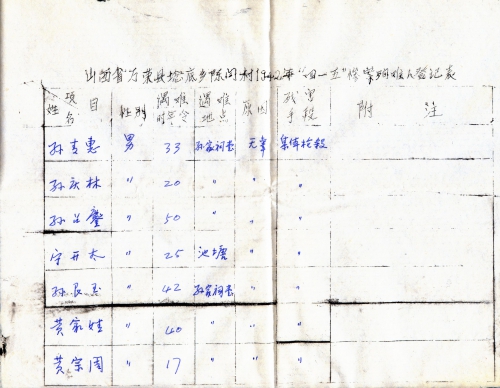 山西省万荣县埝底乡陈间村1942年“四一五”惨案遇难人登记表
项目 姓名 性别 遇难时年令 遇难地点 原因 残害手段 附注
孙克惠 男 33 孙家祠巷 无辜 集体枪殺
孙庆林 〃 20 〃 〃 〃
孙 〃 50 〃 〃 〃
宁开太 〃 25 池塘 〃 〃
孙良玉 〃 42 孙家祠巷 〃 〃
黄家娃 〃 40 〃 〃 〃
黄宗周 〃 17 〃 〃 〃